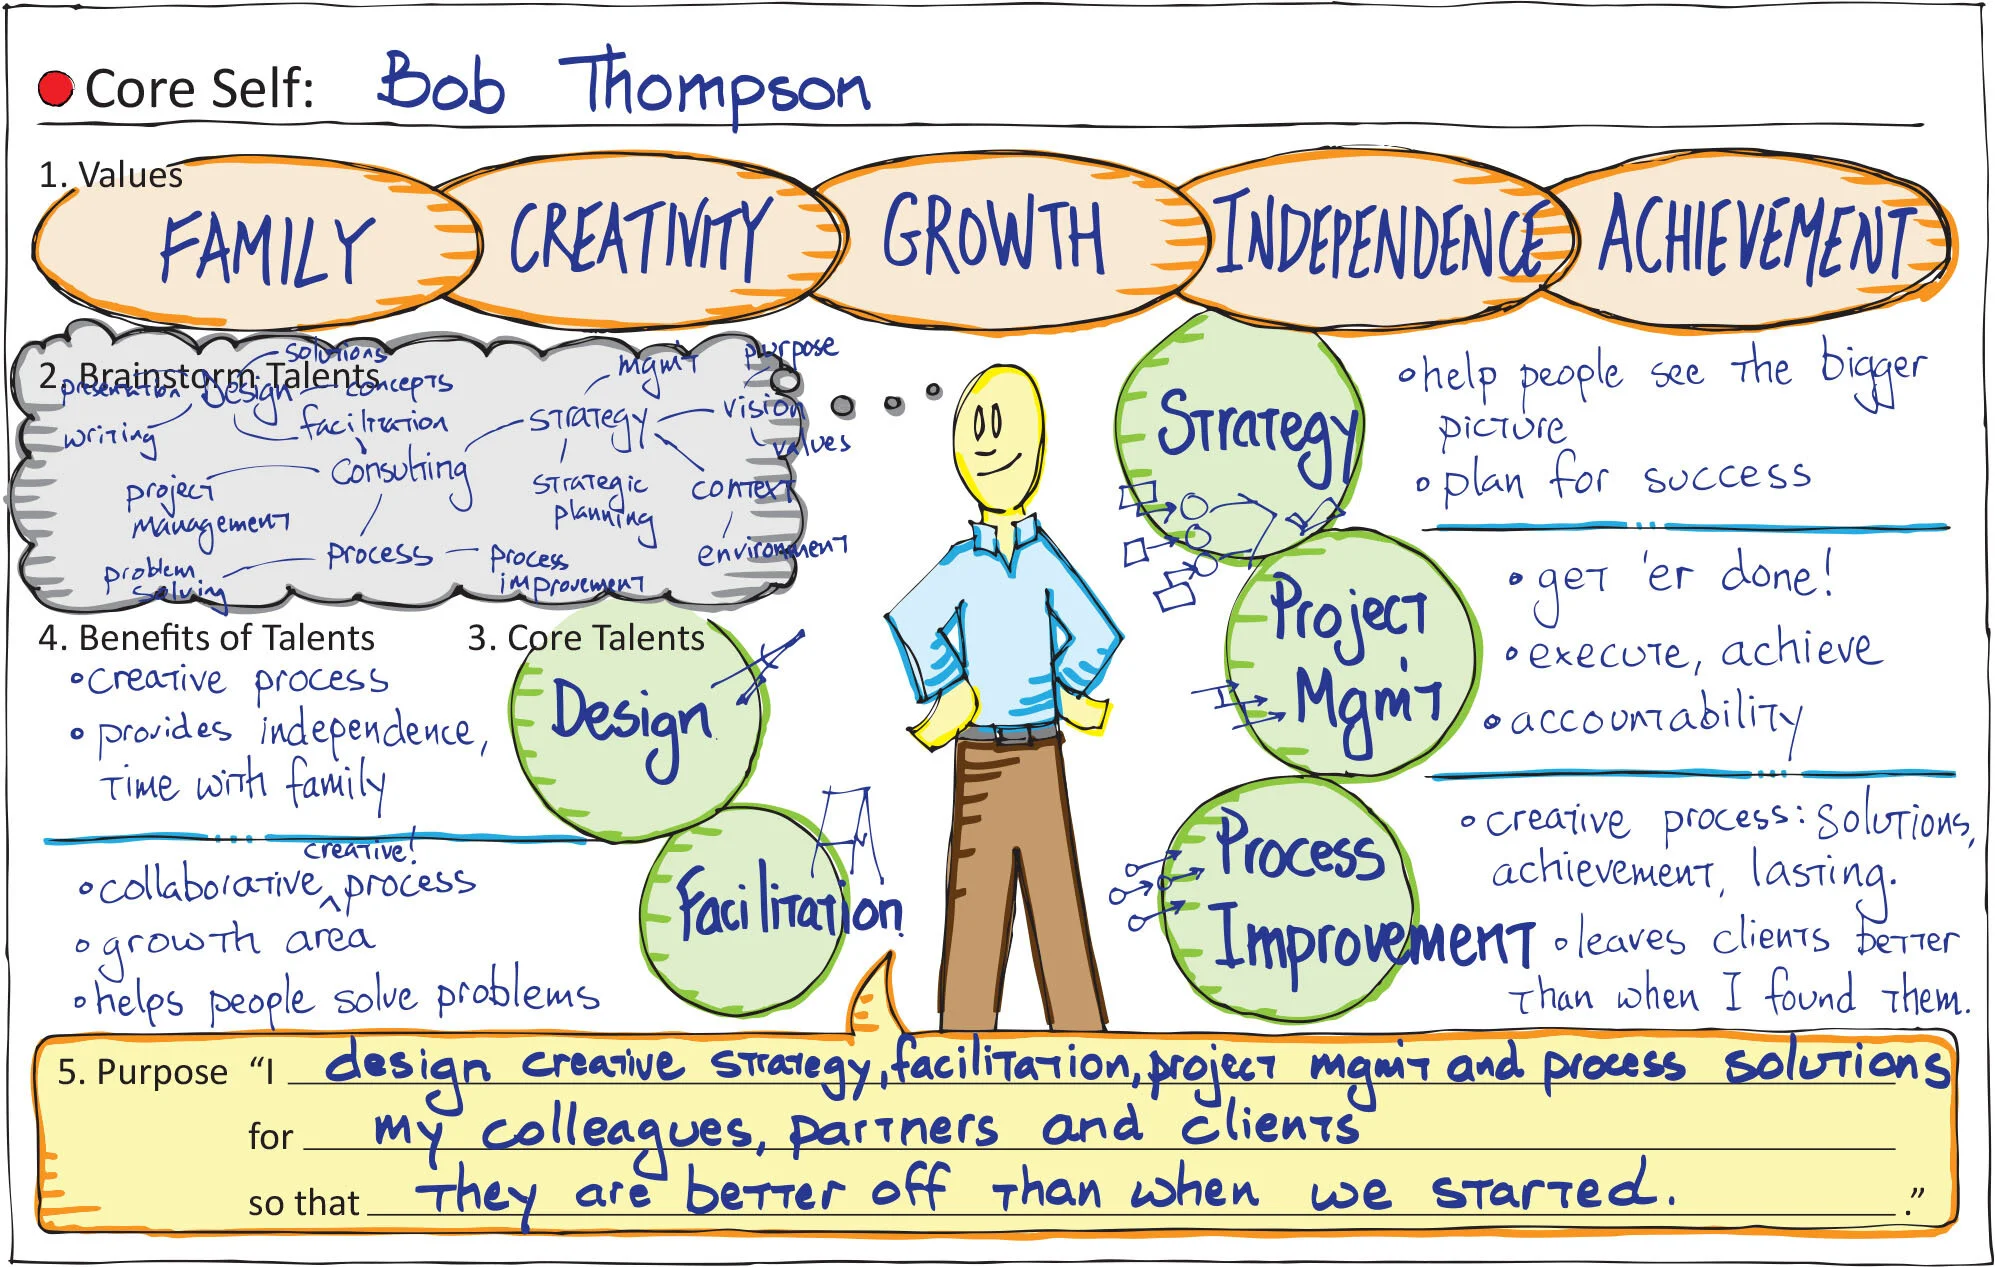 Core Self: Bob Thompson
1. Values
FAMILY
CREATIVITY
GROWTH
INDEPENDENCE
ACHIEVEMENT
2. Brainstorm Talents
solutions
presentation
Design
concepts
writing
facilitation
consulting
project
management
problem
solving
process
process
improvement
strategy
mgm't
purpose
vision
values
strategic
planning
context
environment
3. Core Talents
Design
Facilitation
Strategy
Project
Mgm't
Process
Improvement
4. Benefits of Talents
• creative process
• provides independence,
time with family
creative!
• collaborative ^ process
• growth area
• helps people solve problems
• help people see the bigger
picture
• plan for success
• get 'er done!
• execute, achieve
• accountability
• creative process: solutions,
achievement, lasting.
• leaves clients better
than when I found them.
5. Purpose “I design creative strategy, facilitation, project mgm't and process solutions
for my colleagues, partners and clients
so that they are better off than when we started. .”